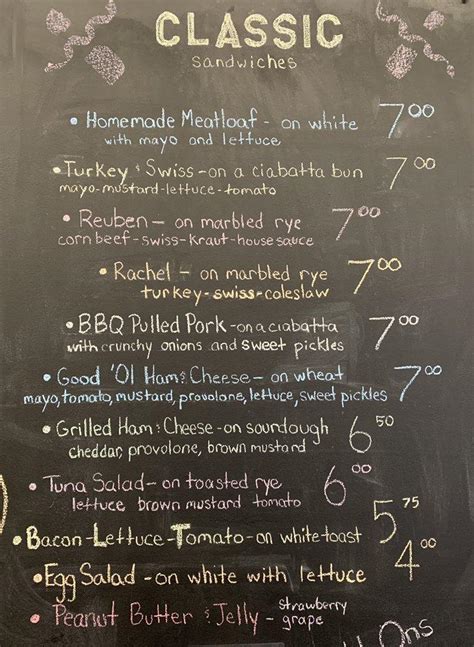 CLASSIC
Sandwiches
• Homemade Meatloaf - on white 7⁰⁰
with mayo and lettuce
• Turkey & Swiss - on a ciabatta bun 7⁰⁰
mayo-mustard-lettuce-tomato
• Reuben - on marbled rye 7⁰⁰
corn beef-swiss-kraut-house sauce
• Rachel - on marbled rye 7⁰⁰
turkey-swiss-coleslaw
• BBQ Pulled Pork - on a ciabatta 7⁰⁰
with crunchy onions and sweet pickles
• Good 'Ol Ham & Cheese - on wheat 7⁰⁰
mayo, tomato, mustard, provolone, lettuce, sweet pickles
• Grilled Ham & Cheese - on sourdough 6⁵⁰
cheddar, provolone, brown mustard
• Tuna Salad - on toasted rye 6⁰⁰
lettuce brown mustard tomato
• Bacon-Lettuce-Tomato - on white toast 5⁷⁵
• Egg Salad - on white with lettuce 4⁰⁰
• Peanut Butter & Jelly - strawberry
grape
Ons